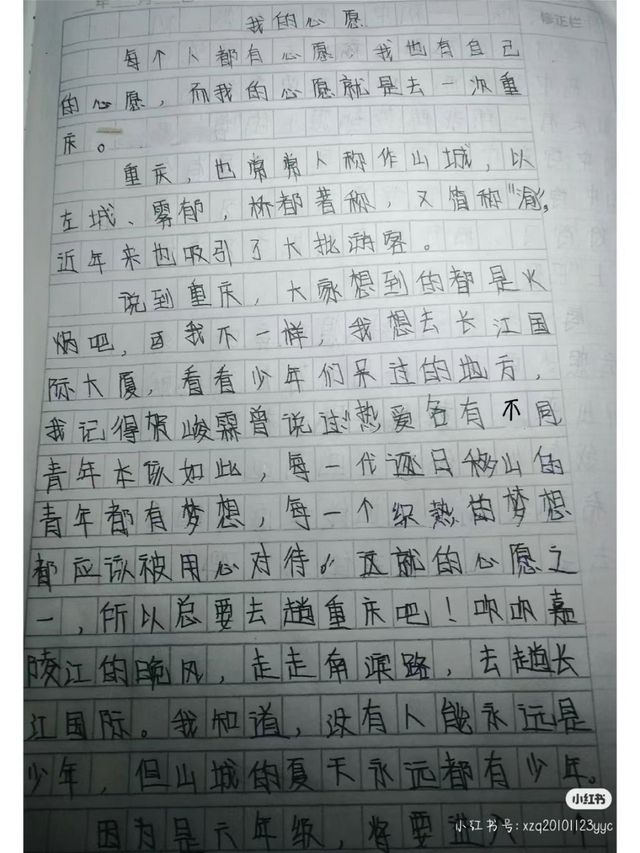 我的心愿
修正栏
每个人都有心愿，我也有自己
的心愿，而我的心愿就是去一次重
庆。
重庆，也常常人称作山城，以
左城、雾郁，桥都著称，又简称"渝"，
近年来也吸引了大批游客。
说到重庆，大家想到的都是火
炳吧，而我不一样，我想去长江国
际大厦，看看少年们呆过的地方，
我记得贺峻霖曾说过"热爱各有不同
青年本该如此，每一代逐日移山的
青年都有梦想，每一个织热的梦想
都应该被用心对待。"这就的心愿之
一，所以总要去趟重庆吧！吹吹嘉
陵江的晚风，走走南滨路，去趟长
江国际。我知道，没有人能永远是
少年，但山城的夏天永远都有少年。
因为是六年级，将要进入一个
小红书
小红书号：xzq20101123yyc